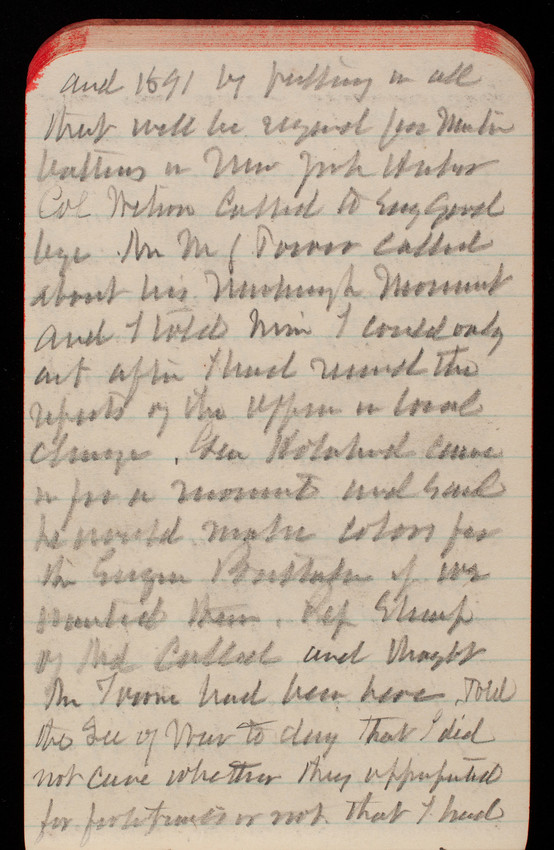 and 1891 by putting in all
that will be required for Mortar
batteries in New York Harbor
Col Wilson called to say good
bye. Mr M J Power called
about his Newburgh Monument
and I told him I could only
act after I had received the
reports of the officer in local
charge. Gen Holabird came
in for a moment and said
he would make colors for
the Engineer Battalion if we
wanted them. Rep Stump
of Md called and thought
the Tvorie had been here. Told
the Sec of War to day that I did
not care whether they appropriated
for fortifications or not that I had